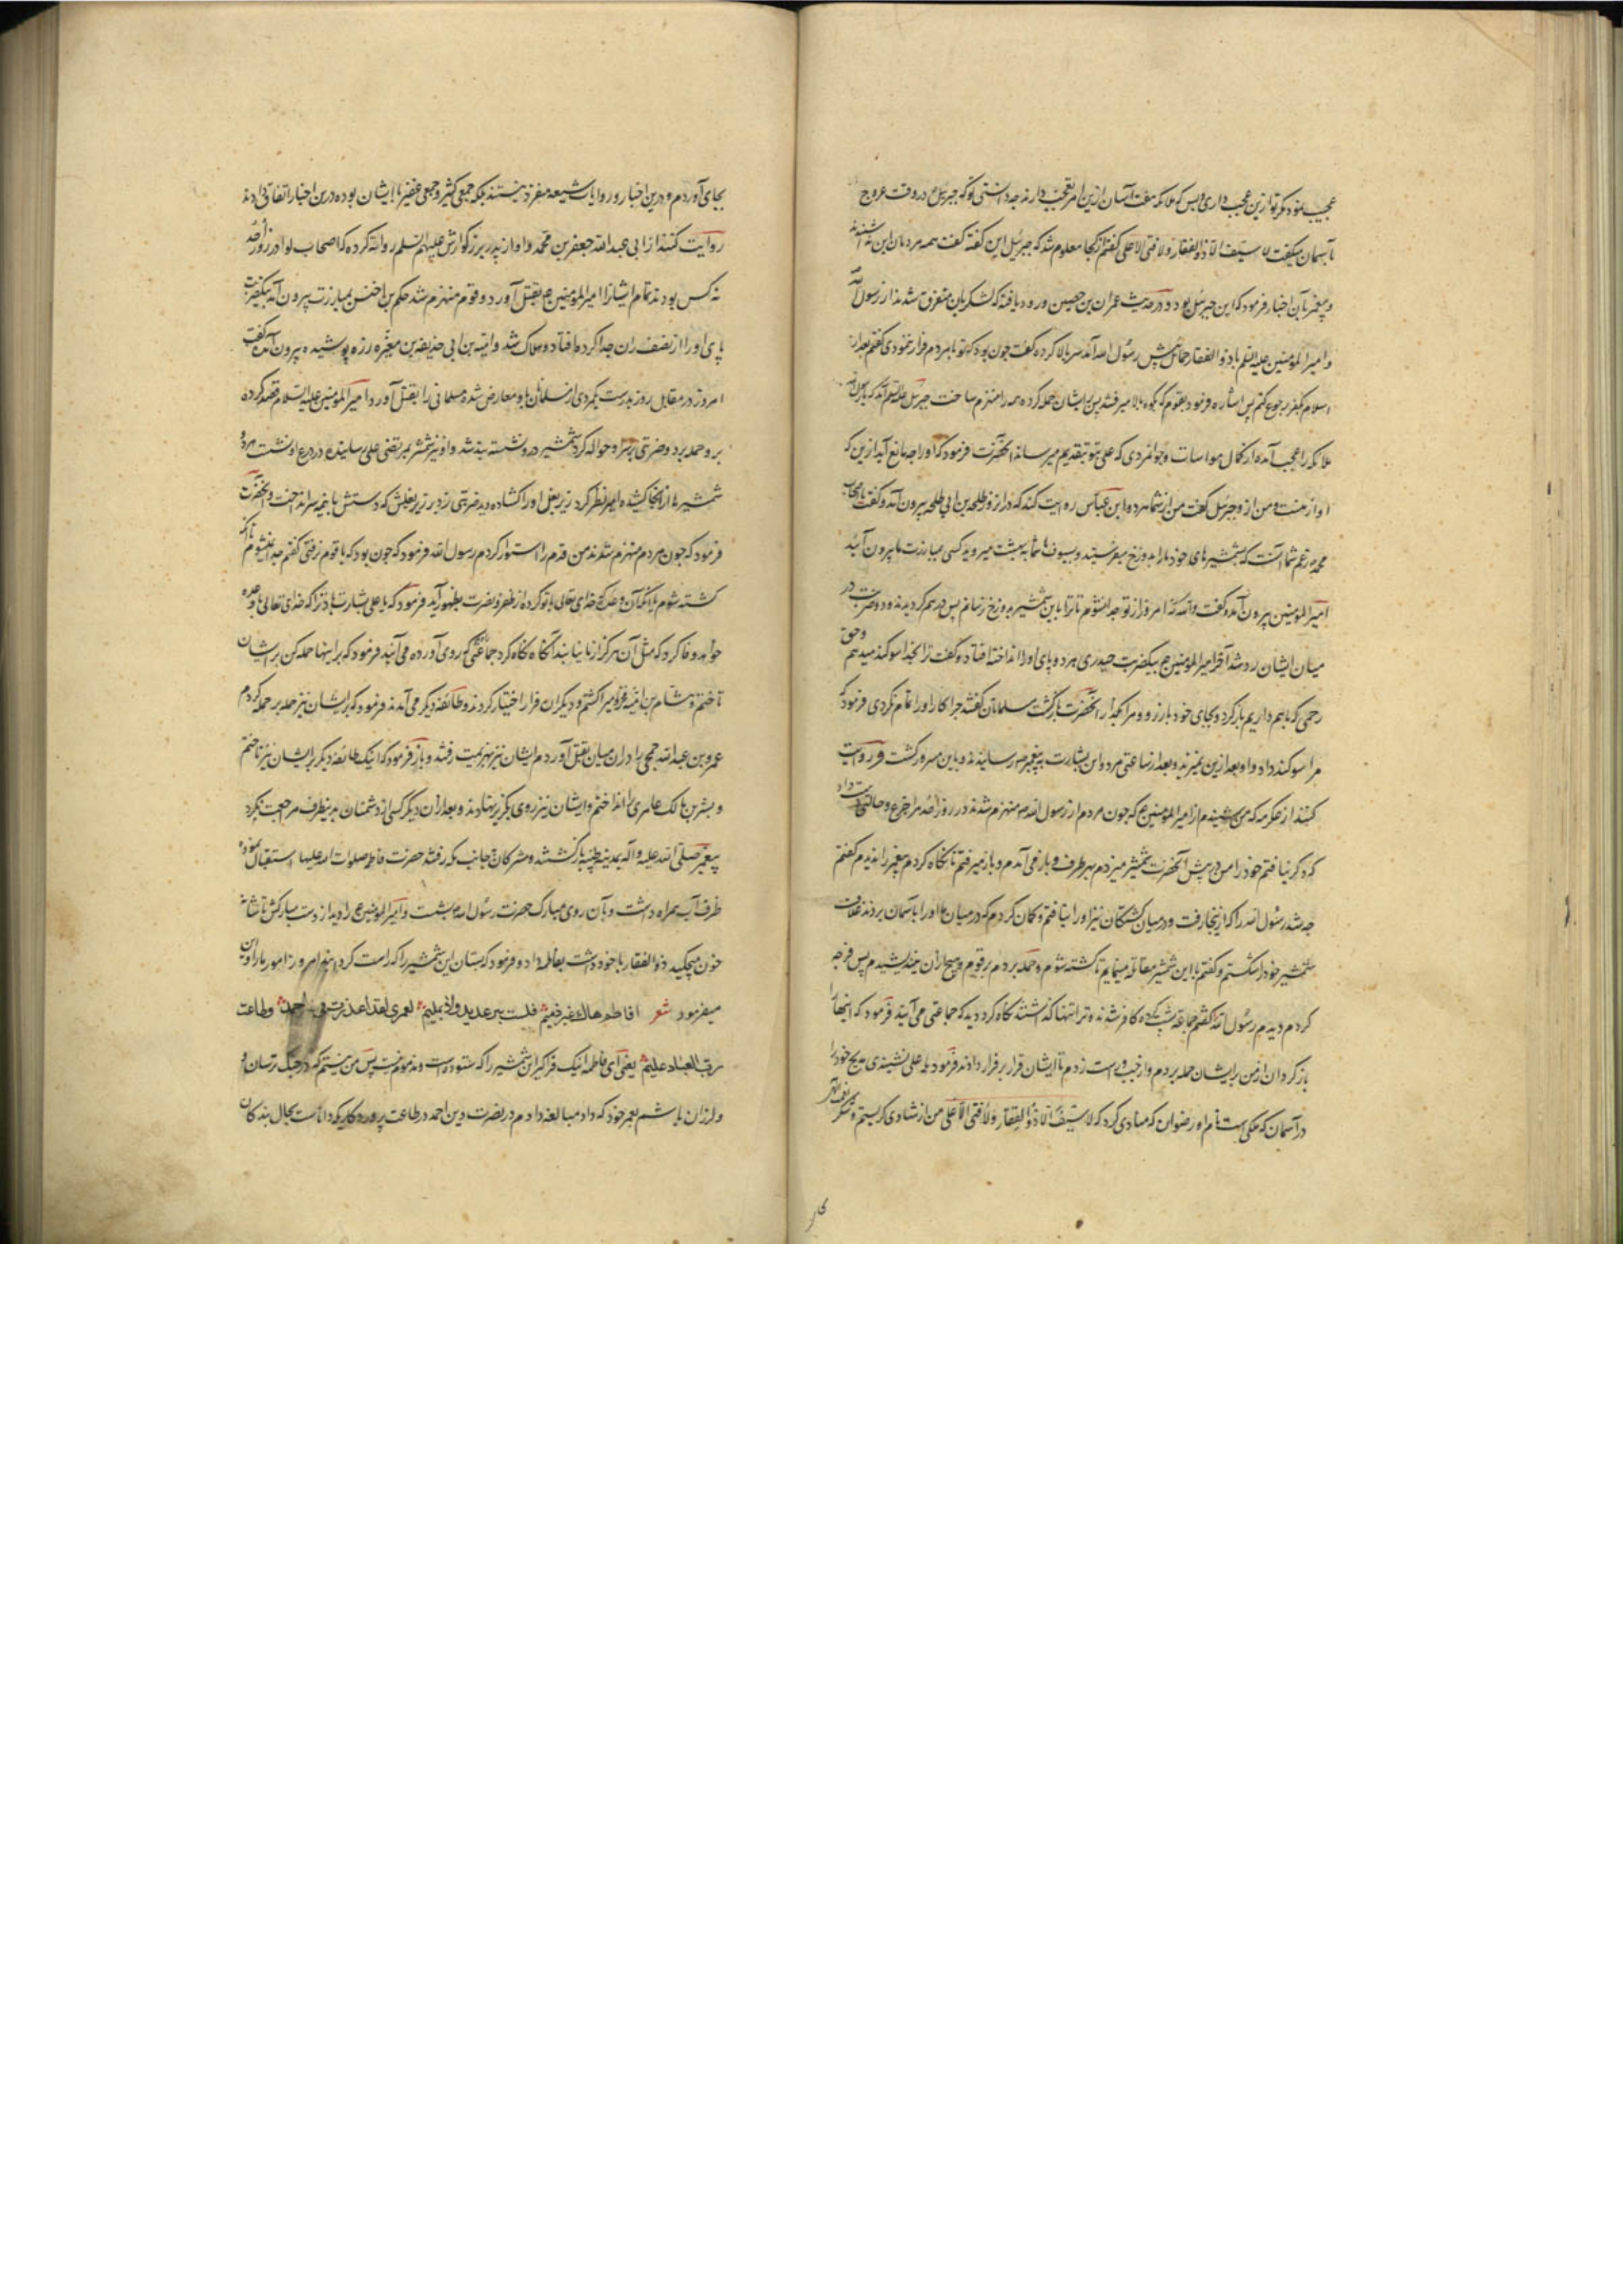 عجیب نمود مگر تو ازین عجب داری و بس که ملائکه هفت آسمان ازین امر تعجب دارند چه دانستی تو که جبرئیل در وقت عروج
بآسمان میگفت لا سیف الا ذو الفقار ولا فتی الا علی گفتم از کجا معلوم شد که جبرئیل این گفته گفت همه مردمان این ندا شنیدند
و پیغمبر بآن اخبار فرمود که این جبرئیل بود و در حدیث عمران بن حصین ورود یافته که لشکریان متفرق شدند از رسول الله
و امیر المومنین علیه السلم با ذو الفقار حمایل پیش رسول الله آمد سر بالا کرده گفت چون بود که تو با مردم فرار ننمودی گفتم بعد از
اسلام بکفر رجوع کنم پس اشاره فرمود بقوم که بکوه بالا میرفتند پس بر ایشان حمله کرده همه را منهزم ساخت جبرئیل علیه السلم آمد که یا رسول الله
ملائکه را عجب آمده از کمال مواسات و جوانمردی که علی بتو بتقدیم میرساند آنحضرت فرمود که او را چه مانع آید ازین که
او از منست و من از و جبرئیل گفت من از شما هر دو ابن عباس روایت کند که در آنروز طلحه بن ابی طلحه بیرون آمد و گفت یا اصحاب
محمد زعم شما آنست که بشمشیرهای خود ما را بدوزخ میفرستید و بسیوف ما شما به بهشت میروید کسی بمبارزت ما بیرون آئید
امیر المومنین بیرون آمد و گفت والله که امروز از تو جدا نشوم تا ترا باین شمشیر بدوزخ رسانم پس در هم گردیدند و دو ضربت در
میان ایشان رد شد آخر امیر المومنین ع بیکضربت حیدری هر دو پای او را انداخته افتاد و گفت ترا بخدا سوگند میدهم و حق
رحمی که با هم داریم باز گرد و بجای خود باز رو و مرا بگذار آنحضرت باز گشت مسلمانان گفتند چرا کار او را تمام نکردی فرمود که
مرا سوگند داد و او بعد ازین نمیزند و بعد از ساعتی مرد و این بشارت به پیغمبر ص رسانیدند و باین مسرور گشت و روایت
کنند از عکرمه که می شنیدم از امیر المومنین ع که چون مردم از رسول الله ص منهزم شدند در روز احد مرا جزع و حالتی دست داد
که دگر نیافتم خود را من در پیش آنحضرت شمشیر میزدم بهر طرف و باز می آمدم و باز میرفتم تا نگاه کردم پیغمبر را ندیدم گفتم
چه شد رسول الله را که از ینجا رفت و در میان کشتگان نیز او را نیافتم و گمان کردم که در میان ما او را بآسمان بردند غلاف
شمشیر خود را شکستم و گفتم با این شمشیر مقاتله مینمایم تا کشته شوم و حمله بردم بر قوم و پس فرجه
کردم دیدم رسول الله گفتم جماعتی کافر شدند و ترا تنها گذاشتند نگاه کرد دید که جماعتی می آیند فرمود که اینها را
باز گردان از من بر ایشان حمله بردم و از چپ و راست زدم تا ایشان قرار بر فرار دادند فرمود یا علی نشنیدی مدیح خود را
در آسمان که ملکی است نام او رضوان که منادی کرد که لا سیف الا ذو الفقار ولا فتی الا علی من از شادی گریستم و شکر
بجای آوردم و درین اخبار و روایات شیعه مفرد نیستند بلکه جمعی کثیر و جمعی غفیر با ایشان بوده درین اخبار اتفاق دارند
روایت کنند از ابی عبد الله جعفر بن محمد و او از پدر بزرگوارش علیهم السلم روایت کرده که اصحاب لوا در روز احد
نه کس بودند تمام ایشان را امیر المومنین ع بقتل آورد و قوم منهزم شد حکم بن اخنس بمبارزت بیرون آمد بیکضربت
پای او را از نصف ران جدا کرد و افتاد و هلاک شد و امیه بن ابی حذیفه بن مغیره زره پوشیده بیرون آمد گفت
امروز در مقابل روز بدرست یکمردی از مسلمانان باو معارض شده مسلمانی را بقتل آورد امیر المومنین علیه السلام قصد کرده
برو حمله برد و ضربتی بر سر او حواله کرد شمشیر درو نشسته بند شد و او نیز شمشیر بمرتضی علی رسانیده در درع او نشست هر دو
شمشیرها از آنجا کشیده امیر نظر کرد زیر بغل او را گشاده دید ضربتی زد بر زیر بغلش که دستش با نیمه سر انداخت و آنحضرت
فرمود که چون مردم منهزم شدند من قدم را استوار کردم رسول الله فرمود که چون بود که با قوم نرفتی گفتم جدا نشوم تا آنکه
کشته شوم یا آنکه آن وعده که خدای تعالی با تو کرده از ظفر و نصرت بظهور آید فرمود که یا علی بشارت باد ترا که خدای تعالی با وعده
خواهد وفا کرد که مثل آن هرگز از ما نیابند آنگاه نگاه کرد جماعتی که روی آورده می آیند فرمود که بر اینها حمله کن بر ایشان
تاختم و هشام بن امیه را کشتم و دیگران فرار اختیار کردند و طائفه دیگر می آمدند فرمود که بر ایشان نیز حمله بر حمله کردم
عمرو بن عبد الله جمحی را در آن میان بقتل آوردم ایشان نیز بهزیمت رفتند و باز فرمود که اینک طائفه دیگر بر ایشان نیز تاختم
و بشر بن مالک عامری را انداختم و ایشان نیز روی بگریز نهادند و بعد از آن دیگر کسی از دشمنان بدینطرف مراجعت نکرد
پیغمبر صلی الله علیه و آله بمدینه طیبه باز گشتند و مشرکان بجانب مکه رفتند حضرت فاطمه صلوات الله علیها استقبال نموده
ظرف آب همراه داشت و بآن روی مبارک حضرت رسول الله بشست و امیر المومنین ع را دید از دست مبارکش تا شانه
خون میچکید ذو الفقار با خود داشت بفاطمه داد و فرمود که بستان این شمشیر را که راست کرد امروز امور ما را و این
میفرمود شعر افاطم هاك غير ذميم فلست برعديد ولا بمليم لعمري لقد اعذرت في احمد وطاعت
رب العباد عليم یعنی ای فاطمه اینک فراگیر این شمشیر را که ستوده است و مذموم نیست پس من نیستم که در جنگ ترسان و
و لرزان باشم بعمر خود که داد مبالغه دادم در نصرت دین احمد در طاعت پروردگاریکه داناست بحال بندگان